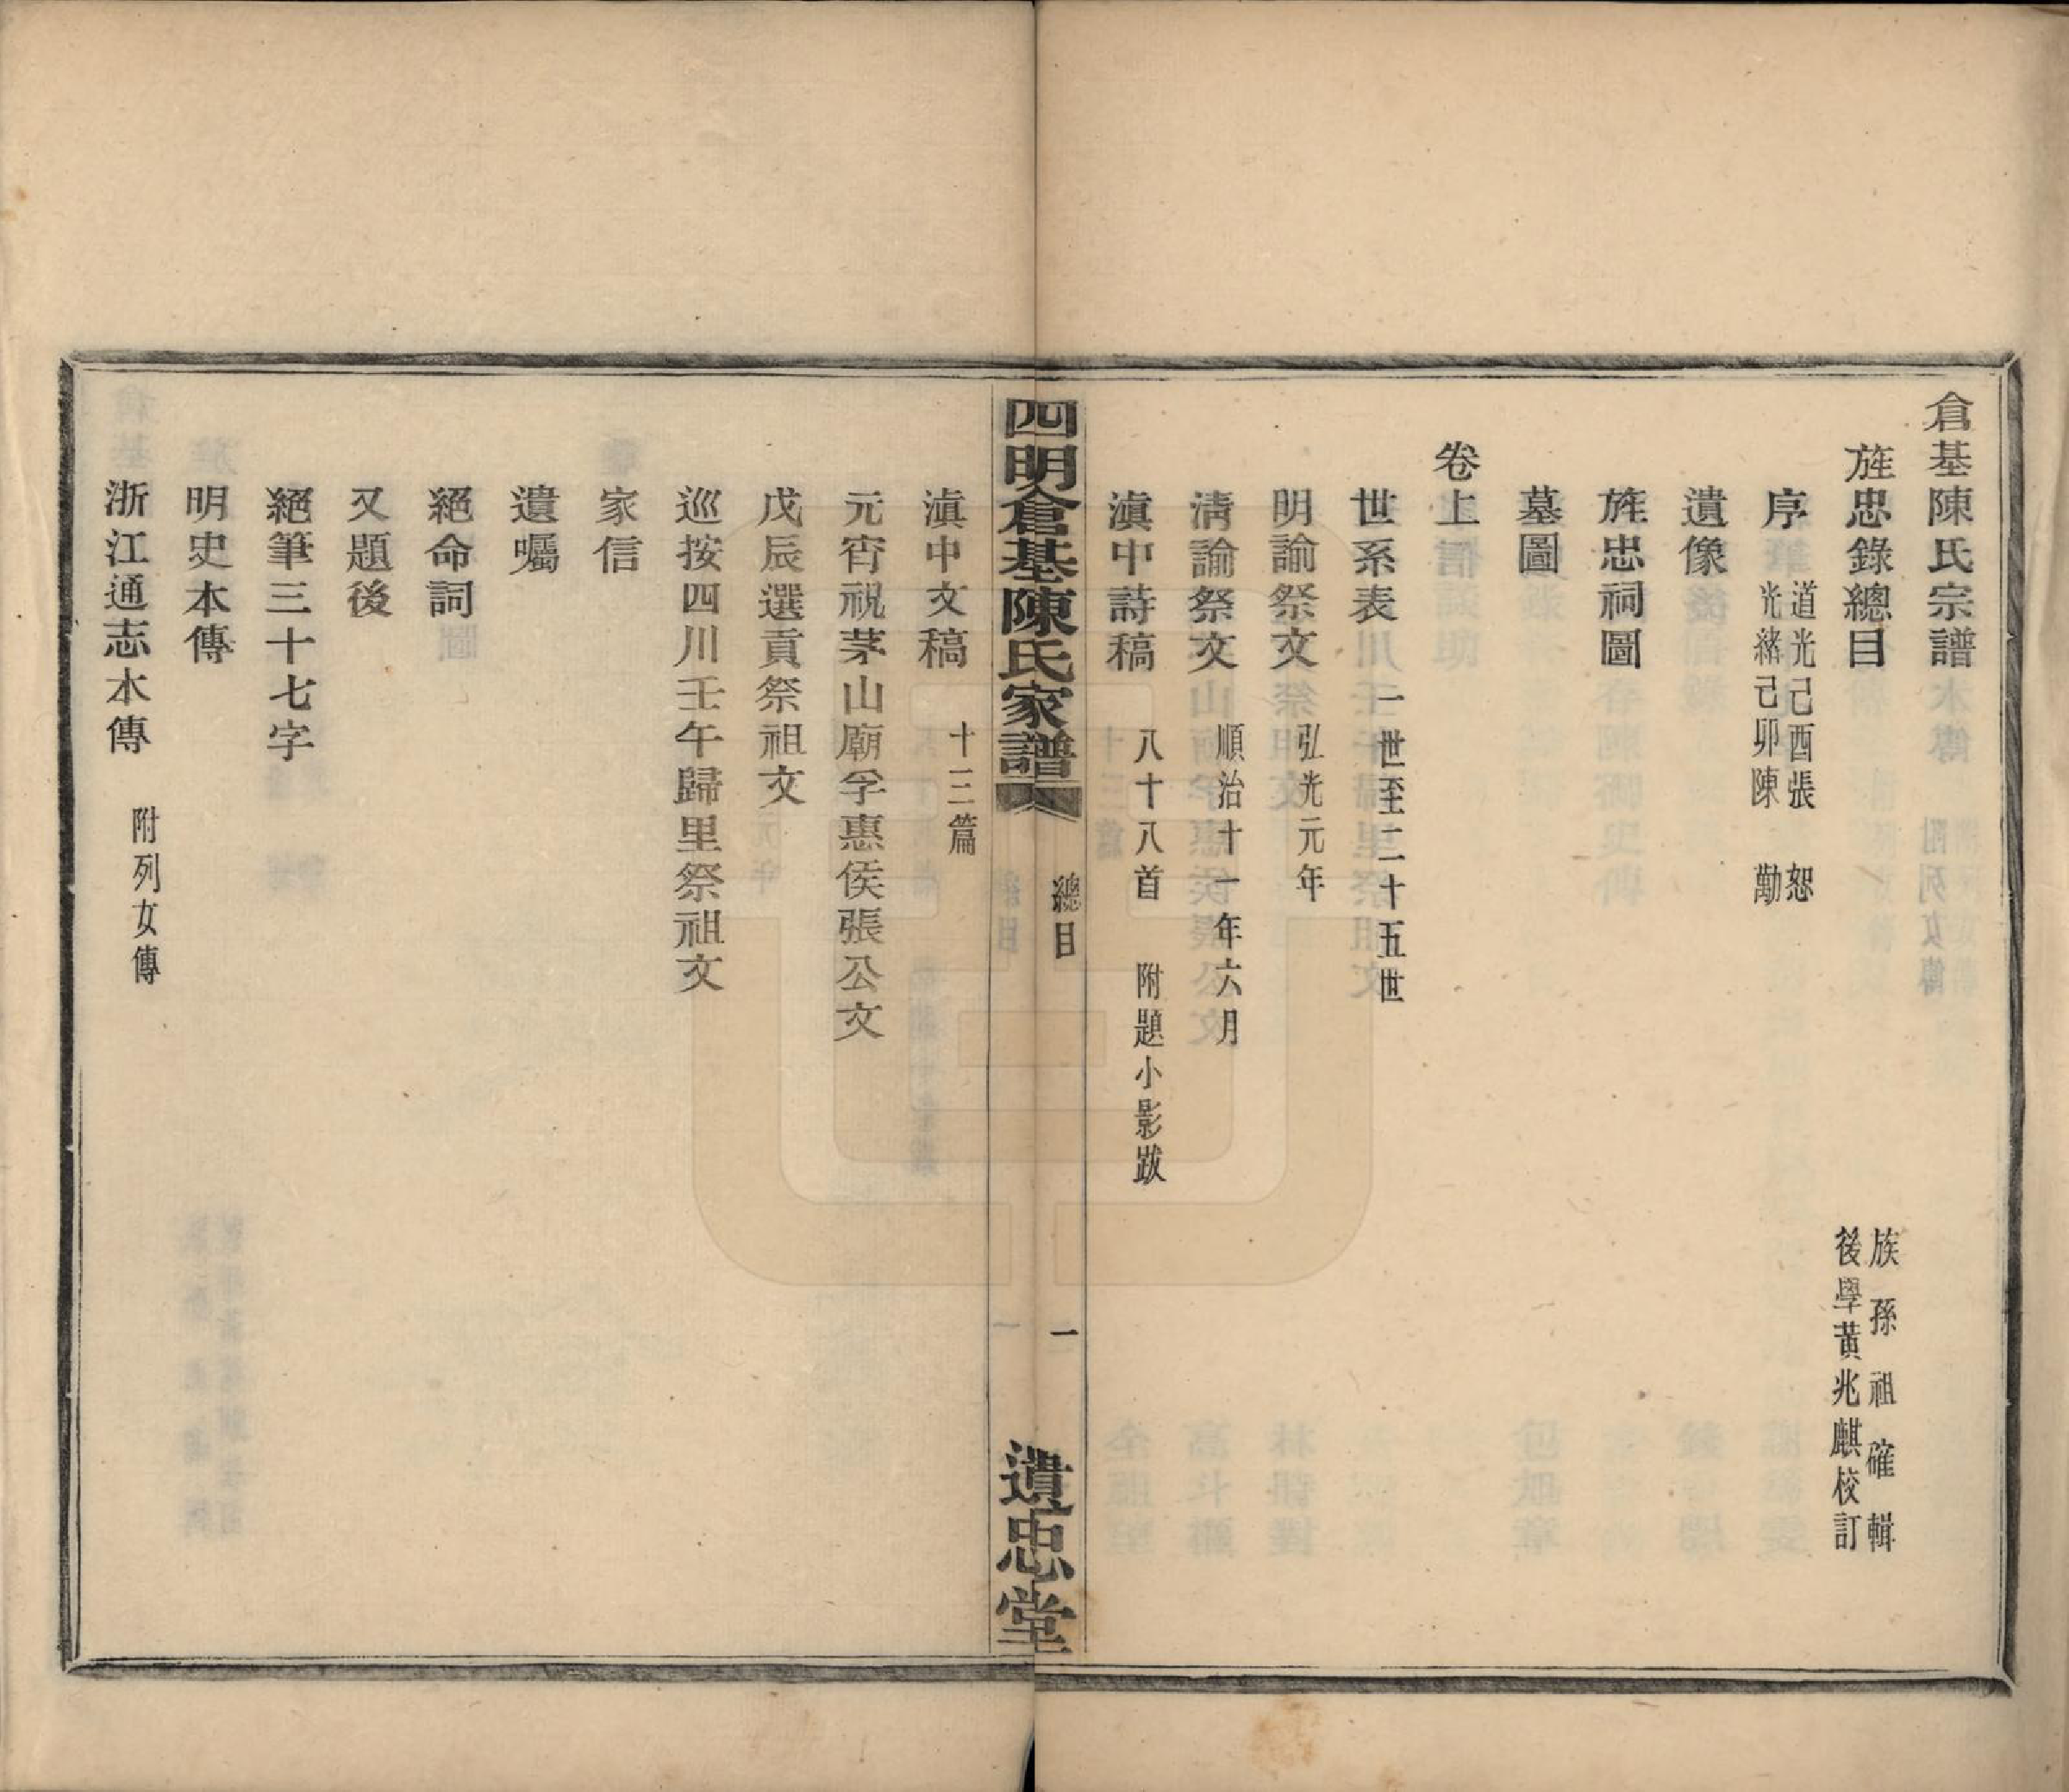 倉基陳氏宗譜
旌忠錄總目
族孫祖確輯
後學黃兆麒校訂
序
道光己酉張恕
光緒己卯陳勱
遺像
旌忠祠圖
墓圖
卷上
世系表 一世至二十五世
明諭祭文 弘光元年
清諭祭文 順治十一年六月
滇中詩稿 八十八首 附題小影跋
四明倉基陳氏家譜 總目 一 遺忠堂
滇中文稿 十三篇
元宵祝茅山廟孚惠侯張公文
戊辰選貢祭祖文
巡按四川壬午歸里祭祖文
家信
遺囑
絕命詞
又題後
絕筆三十七字
明史本傳
浙江通志本傳 附列女傳